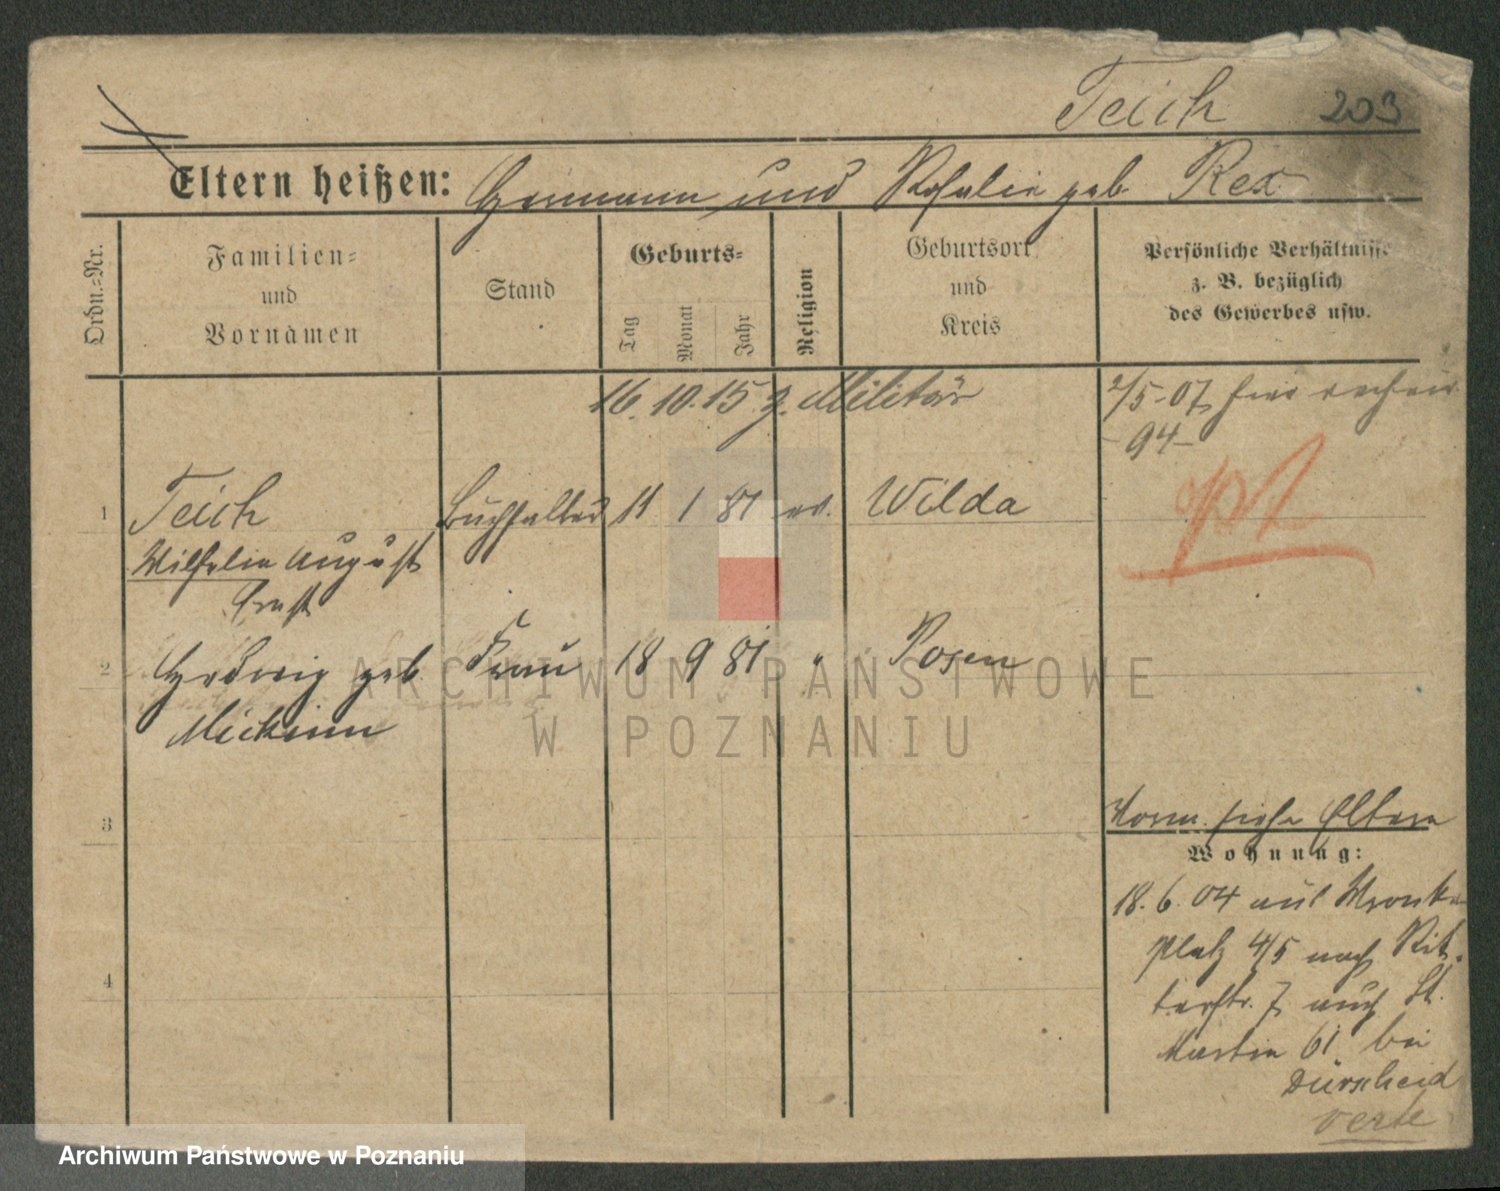 Teich 203
Eltern heißen: Hermann und Rosalie geb. Rex
Ordn.-Nr.
Familien-
und
Vornamen
Stand
Geburts-
Tag
Monat
Jahr
Religion
Geburtsort
und
Kreis
Persönliche Verhältnisse
z. B. bezüglich
des Gewerbes usw.
16. 10. 15 z. Militär
2/5-07
-94-
1 Teich Buchhalter 11 1 81 ev. Wilda
Wilhelm August
Ernst
2 Hedwig geb. Frau 18 9 81 " Posen
3
Vorm. siehe Eltern
Wohnung:
18. 6. 04 aus Wronker
platz 4/5 nach Rit-
4
terstr. 7 auch St.
Martin 61 bei
Dürscheid
verte
ARCHIWUM PAŃSTWOWE
W POZNANIU
Archiwum Państwowe w Poznaniu